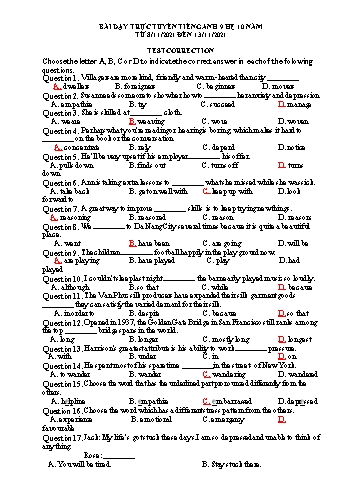 BÀI DẠY TRỰC TUYẾN TIẾNG ANH 9 HỆ 10 NĂM
TỪ 8/11/2021 ĐẾN 13/11/2021
TEST CORRECTION
Choose the letter A, B, C or D to indicate the correct answer in each of the following
questions.
Question 1. Villagers are more kind, friendly and warm-hearted than city ________.
A. dwellers B. foreigners C. beginner D. movers
Question 2. Susan needs someone to show her how to ________ her anxiety and depression.
A. empathie B. try C. succeed D. manage
Question 3. She is skilled at ________ cloth.
A. weave B. weaving C. wove D. woven
Question 4. Perhaps what you're reading or hearing is boring, which makes it hard to
________ on the book or the conversation.
A. concentrate B. rely C. depend D. notice
Question 5. He'll be very upset if his employer ________ his offer.
A. pulls down B. finds out C. turns off D. turns
down
Question 6. Ann is taking extra lessons to ________ what she missed while she was sick.
A. take back B. get on well with C. keep up with D. look
forward to
Question 7. A great way to improve ________ skills is to keep trying new things.
A. reasoning B. reasoned C. reason D. reasons
Question 8. We ________ to Da Nang City several times because it is quite a beautiful
place.
A. went B. have been C. are going D. will be
Question 9. The children ________ football happily in the play ground now.
A. are playing B. have played C. play D. had
played
Question 10. I couldn't sleep last night ________ the bar nearby played music so loudly.
A. although B. so that C. while D. because
Question 11. The Van Phuc silk producers have expanded the irsilk garment goods
________ they can satisfy the varied demand for their silk.
A. in order to B. despite C. because D. so that
Question 12. Opened in 1937, the Golden Gate Bridge in San Francisco still ranks among
the top ________ bridge spans in the world.
A. long B. longer C. mostly long D. longest
Question 13. Harrison's greatest attribute is his ability to work ________ pressure.
A. with B. under C. in D. on
Question 14. He spent most of his spare time ________ in the street of New York.
A. to wander B. wander C. wandering D. wandered
Question 15. Choose the word that has the underlined part pronounced differently from the
others.
A. helpline B. empathie C. embarrassed D. depressed
Question 16. Choose the word which has a different stress pattern from the others.
A. experience B. emotional C. emergency D.
favourable
Question 17. Jack: My life's got stuck these days. I am so depressed and unable to think of
anything.
Rose: ________
A. You will be tired. B. Stay stuck there.